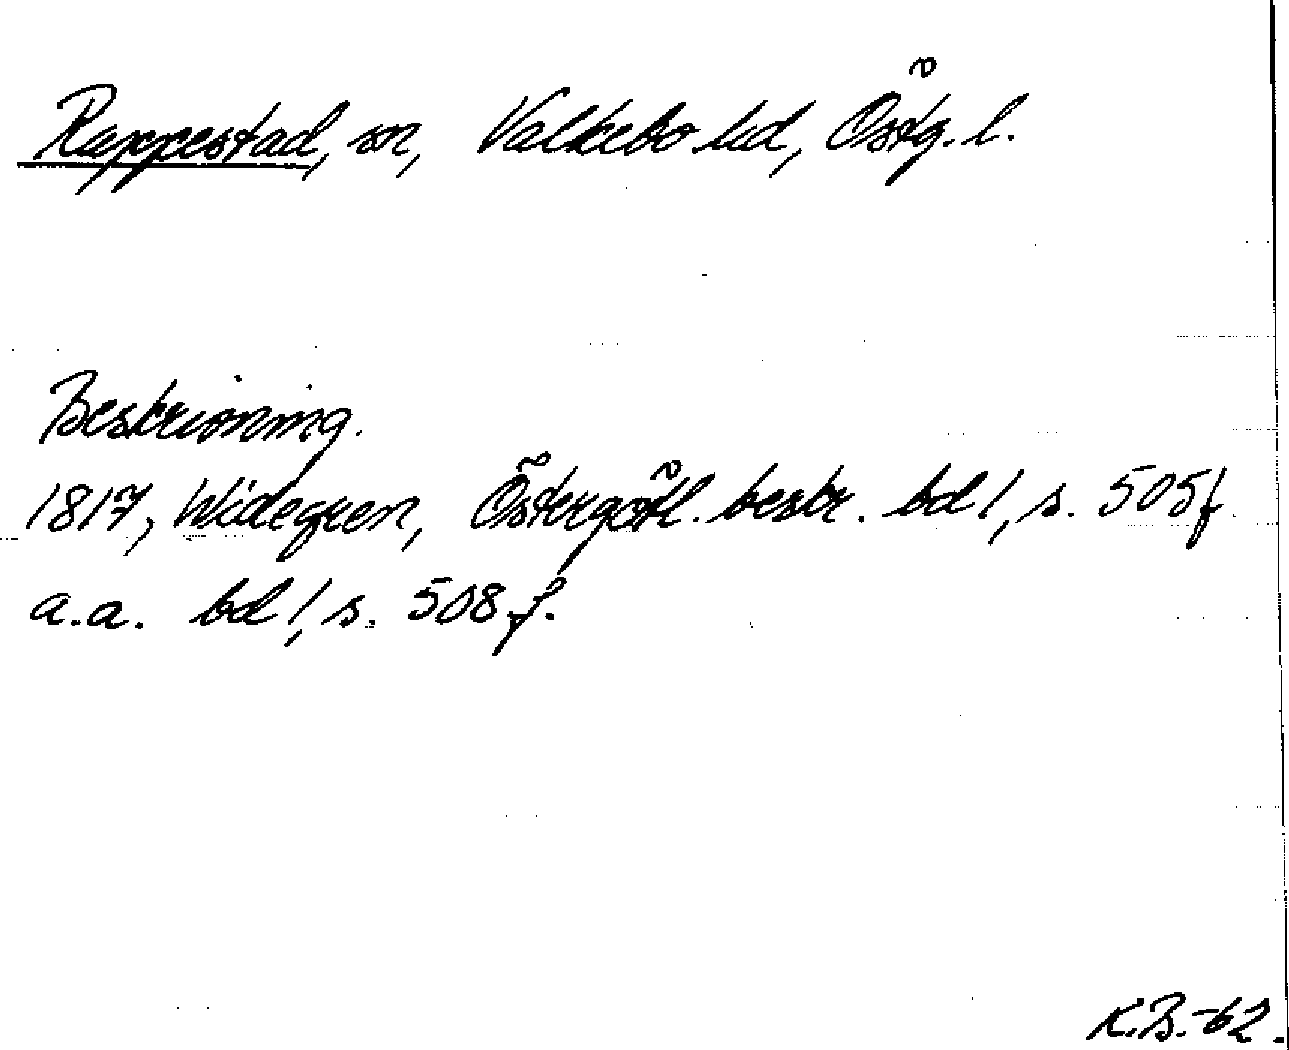 Rappestad, sn, Valkebo hd, Östg. l.
Beskrivning.
1817, Widegren, Östergötl. beskr. bd 1, s. 505f
a.a. bd 1, s. 508 f.
K.B.-62.